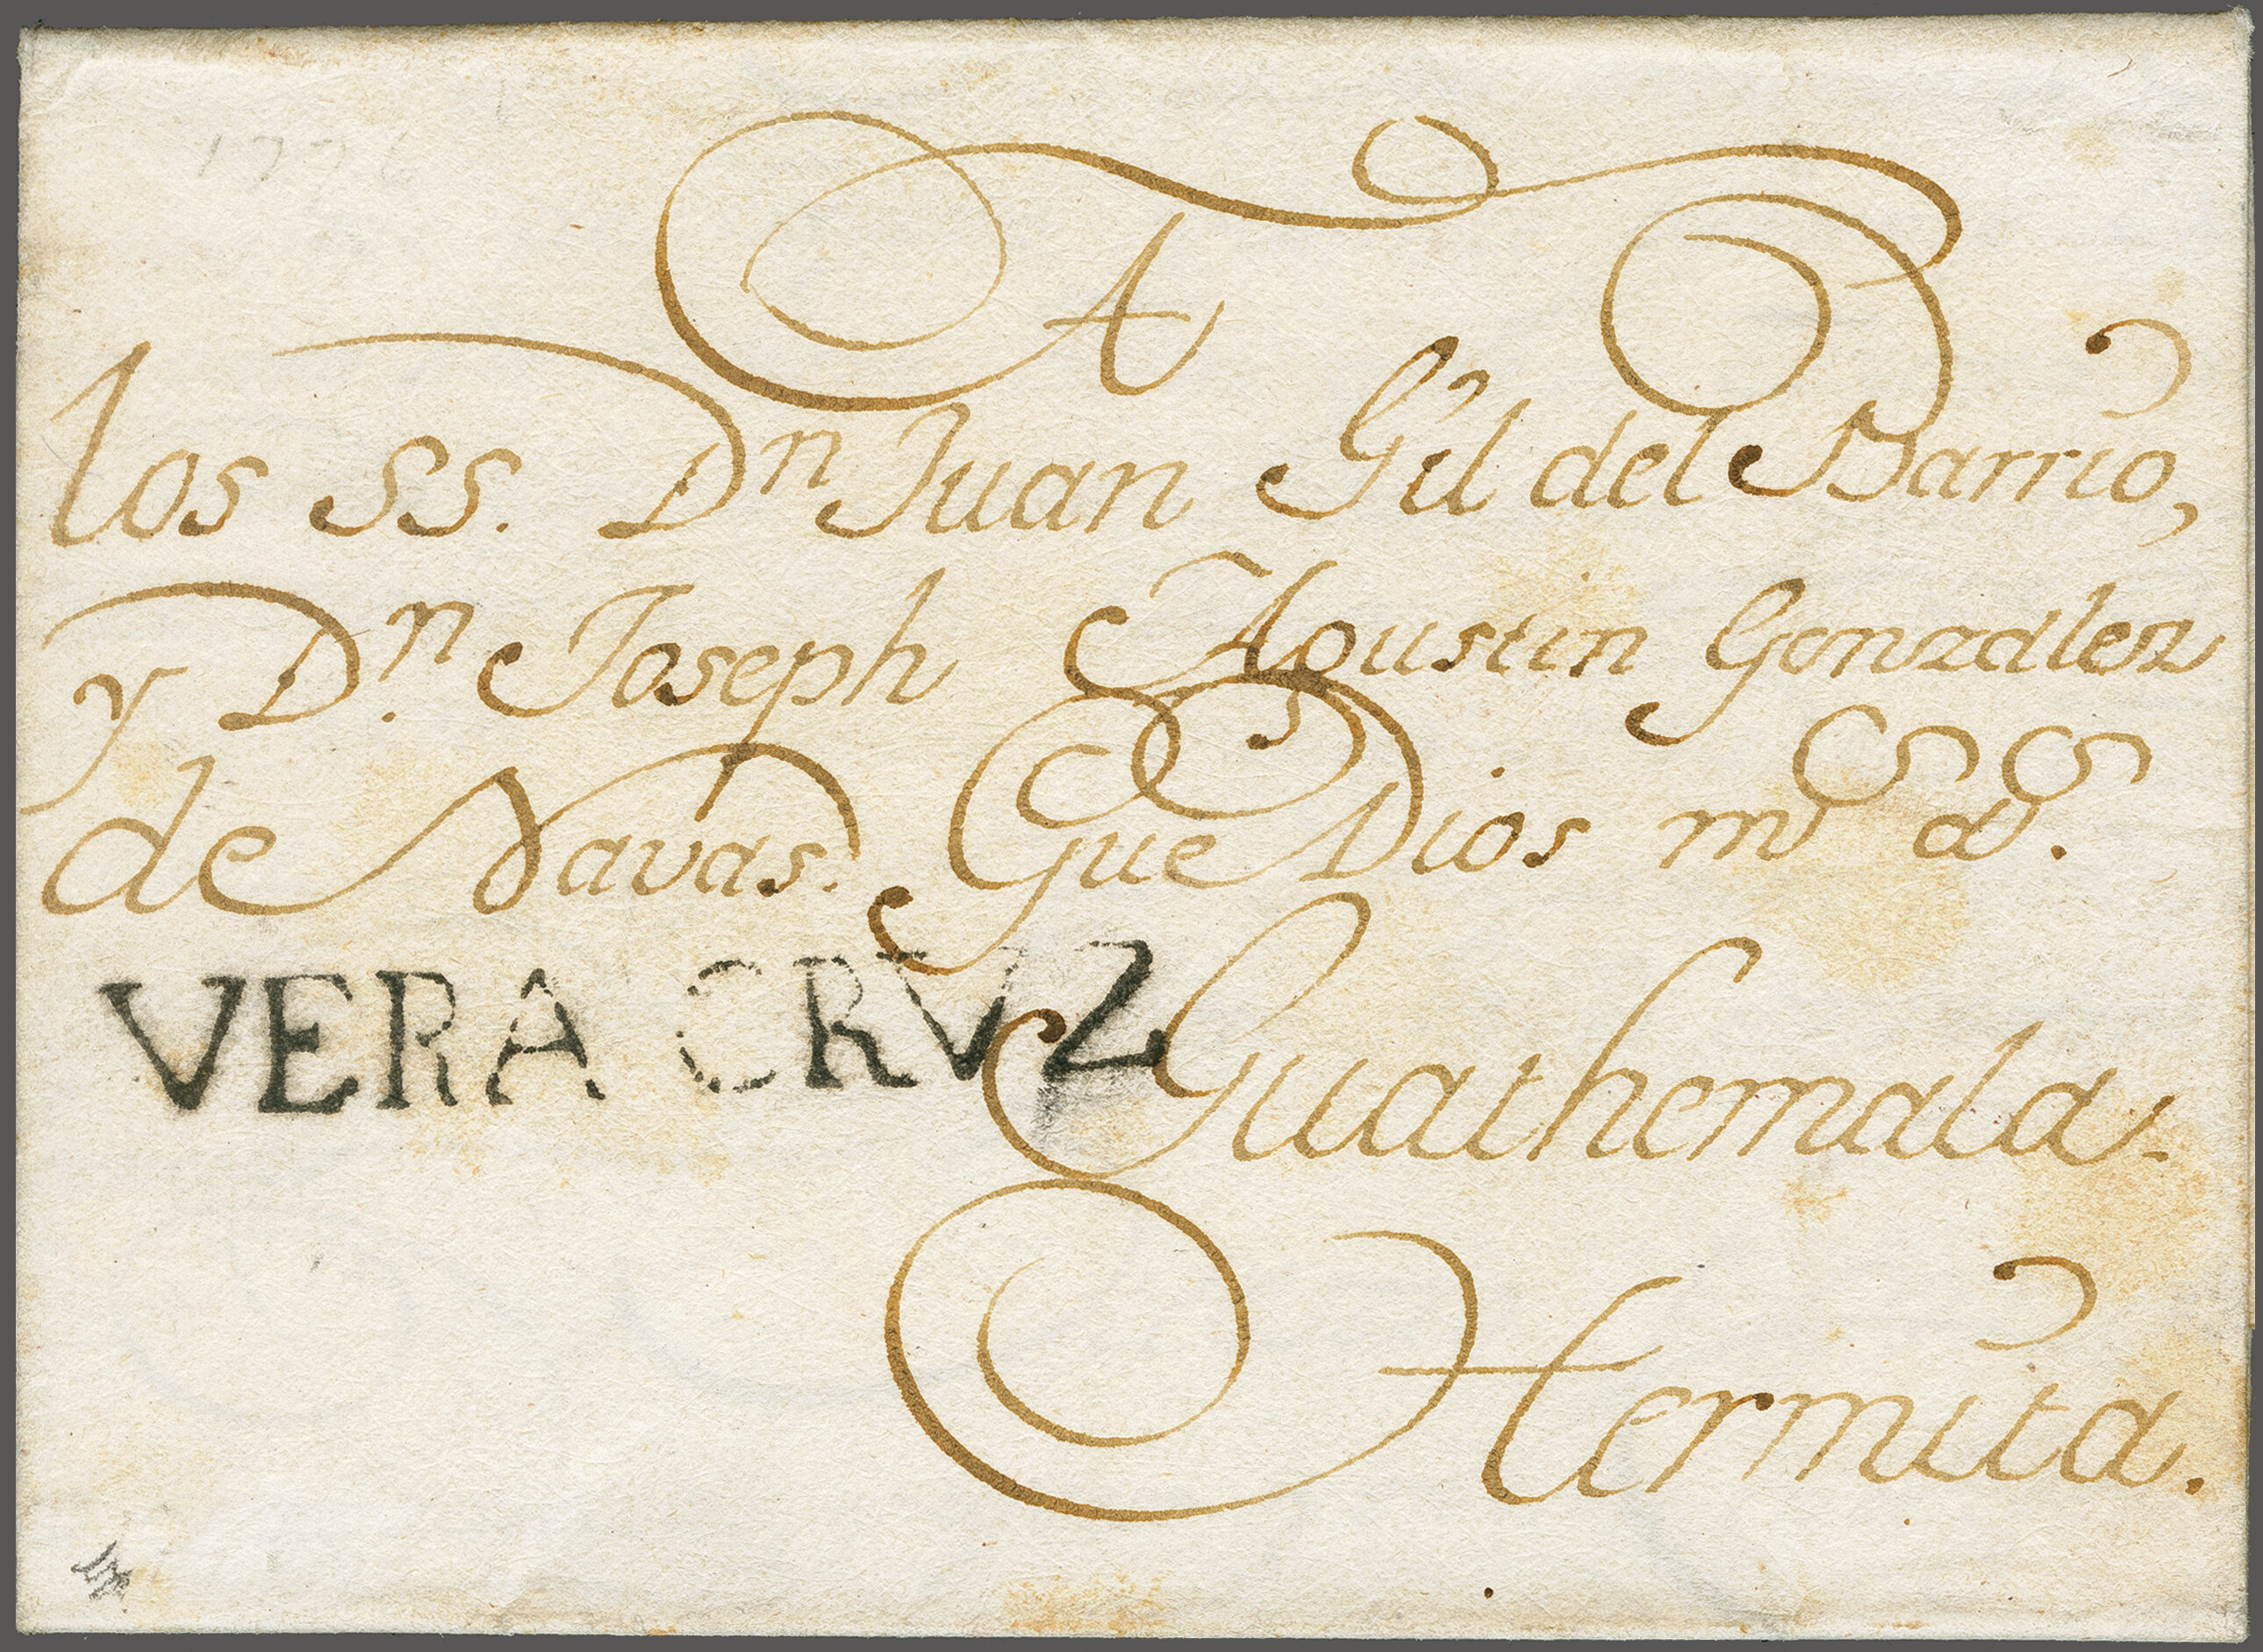 1776
A
los SS. Dn Juan Gil del Barrio,
y Dn. Joseph Agustin Gonzalez
de Navas. Gue Dios ms as.
VERA CRVZ
Guathemala.
Hermita.